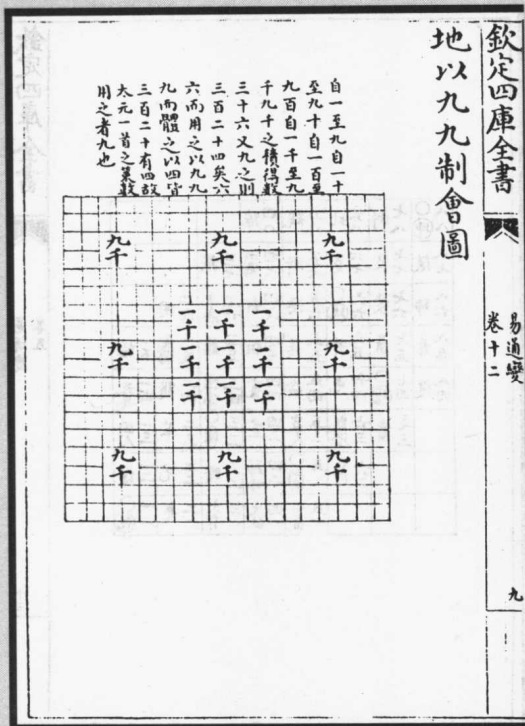 欽定四庫全書
易通變
卷十二
九
地以九九制會圖
自一至九自一十
至九十自一百至
九百自一千至九
千九千之積得數
三十六又九之則
三百二十四矣六
六而用之以九九
九而體之以四皆
三百二十有四故
太元一首之策數
用之者九也
九千
九千
九千
一千一千一千
九千
一千一千一千
九千
一千一千一千
九千
九千
九千